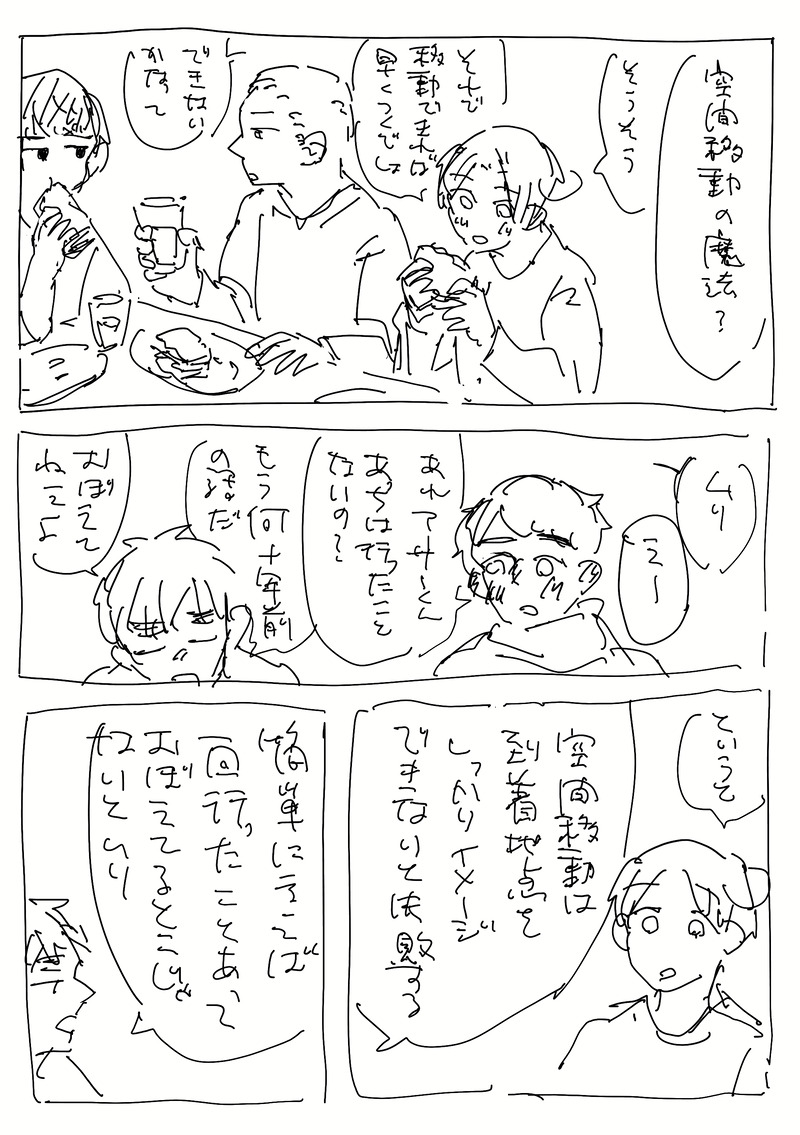 空間移動の魔法?
そうそう
それで
移動できれば
早くつくでしょ
できない
かなって
ムリ
え〜
あれアサーくん
あっちは行ったこと
ないの?
もう何十年前
の話だ
おぼえて
ねえよ
というと
空間移動は
到着地点を
しっかりイメージ
できないと失敗する
簡単にいえば
一回行ったことあって
おぼえてるとこじゃ
ないとムリ